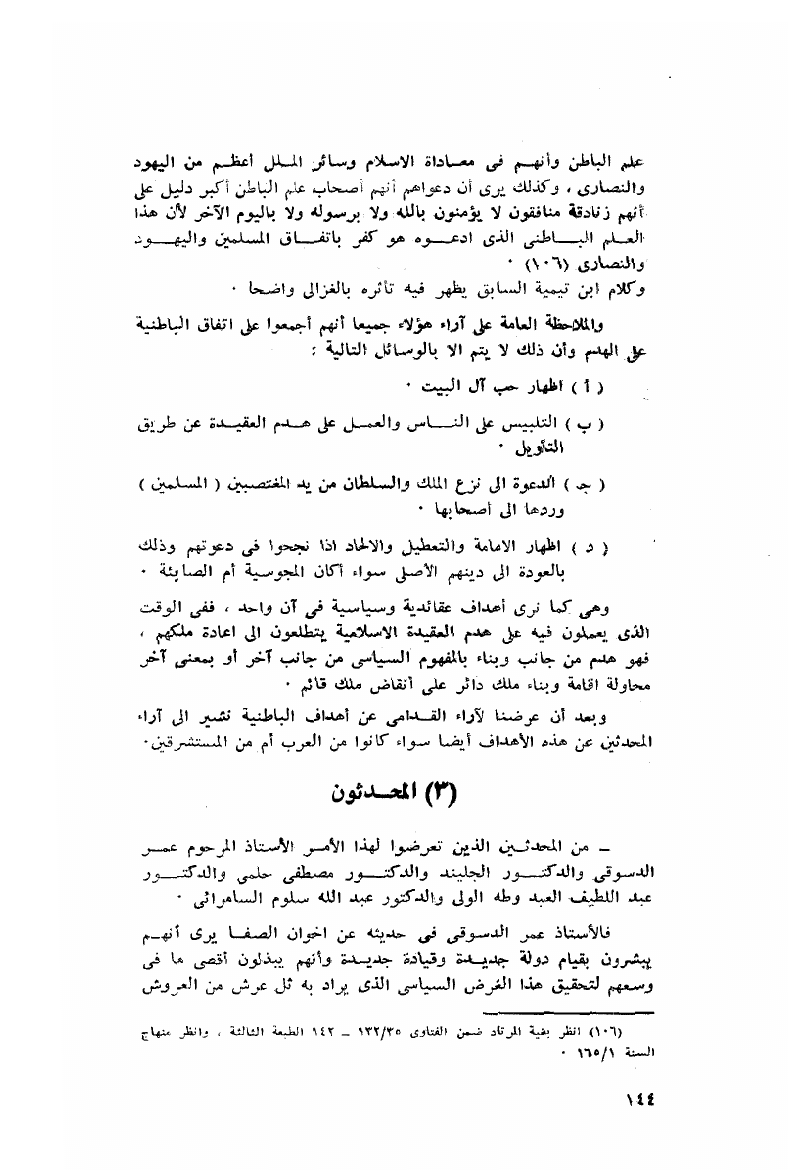 علم الباطن وأنهم في معاداة الاسلام وسائر الملل أعظم من اليهود
والنصارى ، وكذلك يرى أن دعواهم أنهم أصحاب علم الباطن أكبر دليل على
أنهم زنادقة منافقون لا يؤمنون بالله ولا برسوله ولا باليوم الآخر لأن هذا
العلم الباطني الذى ادعوه هو كفر باتفاق المسلمين واليهود
والنصارى (١٠٦) ٠
وكلام ابن تيمية السابق يظهر فيه تأثره بالغزالى واضحا ٠
والملاحظة العامة على آراء هؤلاء جميعا أنهم أجمعوا على اتفاق الباطنية
على الهدم وأن ذلك لا يتم الا بالوسائل التالية :
( أ ) اظهار حب آل البيت ٠
( ب ) التلبيس على الناس والعمل على هدم العقيدة عن طريق
التأويل ٠
( جـ ) الدعوة الى نزع الملك والسلطان من يد المغتصبين ( المسلمين )
وردها الى أصحابها ٠
( د ) اظهار الامامة والتعطيل والالحاد اذا نجحوا في دعوتهم وذلك
بالعودة الى دينهم الأصلى سواء أكان المجوسية أم الصابئة ٠
وهى كما نرى أهداف عقائدية وسياسية في آن واحد ، ففى الوقت
الذى يعملون فيه على هدم العقيدة الاسلامية يتطلعون الى اعادة ملكهم ،
فهو هدم من جانب وبناء بالمفهوم السياسى من جانب آخر أو بمعنى آخر
محاولة اقامة وبناء ملك دائر على أنقاض ملك قائم ٠
وبعد أن عرضنا لآراء القدامى عن أهداف الباطنية نشير الى آراء
المحدثين عن هذه الأهداف أيضا سواء كانوا من العرب أم من المستشرقين ٠
(٣) المحدثون
ـ من المحدثين الذين تعرضوا لهذا الأمر الأستاذ المرحوم عمر
الدسوقى والدكتور الجليند والدكتور مصطفى حلمى والدكتور
عبد اللطيف العبد وطه الولى والدكتور عبد الله سلوم السامرائى ٠
فالأستاذ عمر الدسوقى في حديثه عن اخوان الصفا يرى أنهم
يبشرون بقيام دولة جديدة وقيادة جديدة وأنهم يبذلون أقصى ما في
وسعهم لتحقيق هذا الغرض السياسى الذى يراد به ثل عرش من العروش
(١٠٦) انظر بغية المرتاد ضمن الفتاوى ١٣٢/٣٥ ـ ١٤٢ الطبعة الثالثة ، وانظر منهاج
السنة ١٦٥/١ ٠
١٤٤